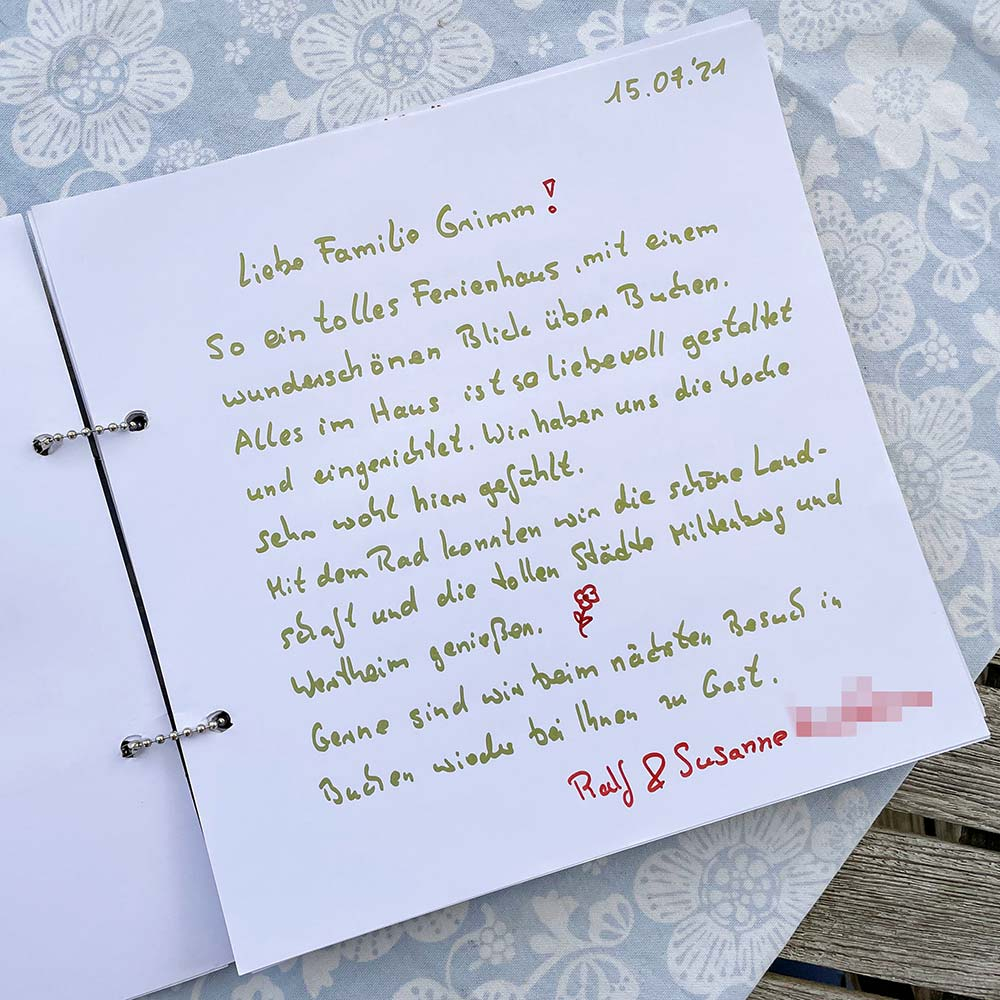 15.07.'21
Liebe Familie Grimm!
So ein tolles Ferienhaus, mit einem
wunderschönen Blick über Buchen.
Alles im Haus ist so liebevoll gestaltet
und eingerichtet. Wir haben uns die Woche
sehr wohl hier gefühlt.
Mit dem Rad konnten wir die schöne Land-
schaft und die tollen Städte Miltenberg und
Wertheim genießen.
Gerne sind wir beim nächsten Besuch in
Buchen wieder bei Ihnen zu Gast.
Ralf & Susanne